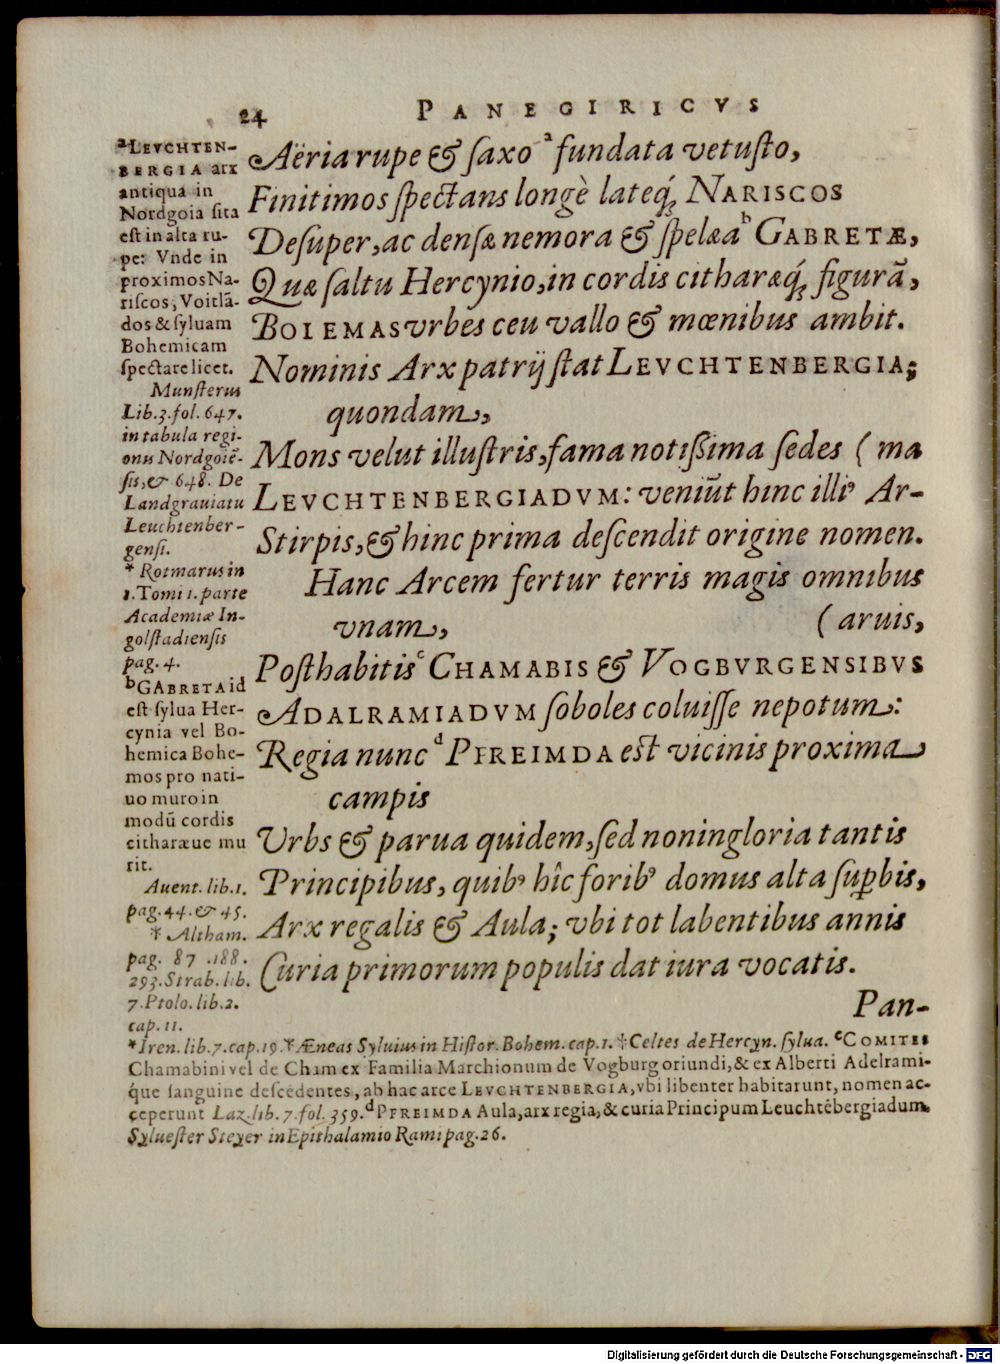 24
PANEGIRICVS
Aëria rupe & saxo ᵃ fundata vetusto,
Finitimos spectans longè lateq́ꝫ NARISCOS
Desuper, ac densæ nemora & spelæa ᵇ GABRETÆ,
Quæ saltu Hercynio, in cordis citharæq́ꝫ figurã,
BOIEMAS vrbes ceu vallo & mœnibus ambit.
Nominis Arx patrij stat LEVCHTENBERGIA;
quondam,
Mons velut illustris, fama notissima sedes (ma
LEVCHTENBERGIADVM: veniũt hinc illiꝰ Ar-
Stirpis, & hinc prima descendit origine nomen.
Hanc Arcem fertur terris magis omnibus
vnam, (aruis,
Posthabitis ᶜ CHAMABIS & VOGBVRGENSIBVS
ADALRAMIADVM soboles coluisse nepotum:
Regia nunc ᵈ PFREIMDA est vicinis proxima
campis
Vrbs & parua quidem, sed non ingloria tantis
Principibus, quibꝰ hîc foribꝰ domus alta suꝑbis,
Arx regalis & Aula; vbi tot labentibus annis
Curia primorum populis dat iura vocatis.
Pan-
ᵃ LEVCHTEN-
BERGIA arx
antiqua in
Nordgoia sita
est in alta ru-
pe: Vnde in
proximos Na-
riscos, Voitlã-
dos & syluam
Bohemicam
spectare licet.
Munsterus
Lib. 3. fol. 647.
in tabula regi-
onis Nordgoiẽ-
sis, & 648. De
Landgrauiatu
Leuchtenber-
gensi.
* Rotmarus in
1. Tomi 1. parte
Academiæ In-
golstadiensis
pag. 4.
ᵇ GABRETA id
est sylua Her-
cynia vel Bo-
hemica Bohe-
mos pro nati-
uo muro in
modũ cordis
citharæue mu
rit.
Auent. lib. 1.
pag. 44. & 45.
* Altham.
pag. 87 .188.
293. Strab. lib.
7. Ptolo. lib. 2.
cap. 11.
* Iren. lib. 7. cap. 19 * Æneas Syluius in Histor. Bohem. cap. 1. † Celtes de Hercyn. sylua. ᶜ COMITES
Chamabini vel de Cham ex Familia Marchionum de Vogburg oriundi, & ex Alberti Adelrami-
que sanguine descedentes, ab hac arce LEVCHTENBERGIA, vbi libenter habitarunt, nomen ac-
ceperunt Laz. lib. 7. fol. 359. ᵈ PFREIMDA Aula, arx regia, & curia Principum Leuchtẽbergiadum.
Syluester Steyer in Epithalamio Rami pag. 26.
Digitalisierung gefördert durch die Deutsche Forschungsgemeinschaft - DFG